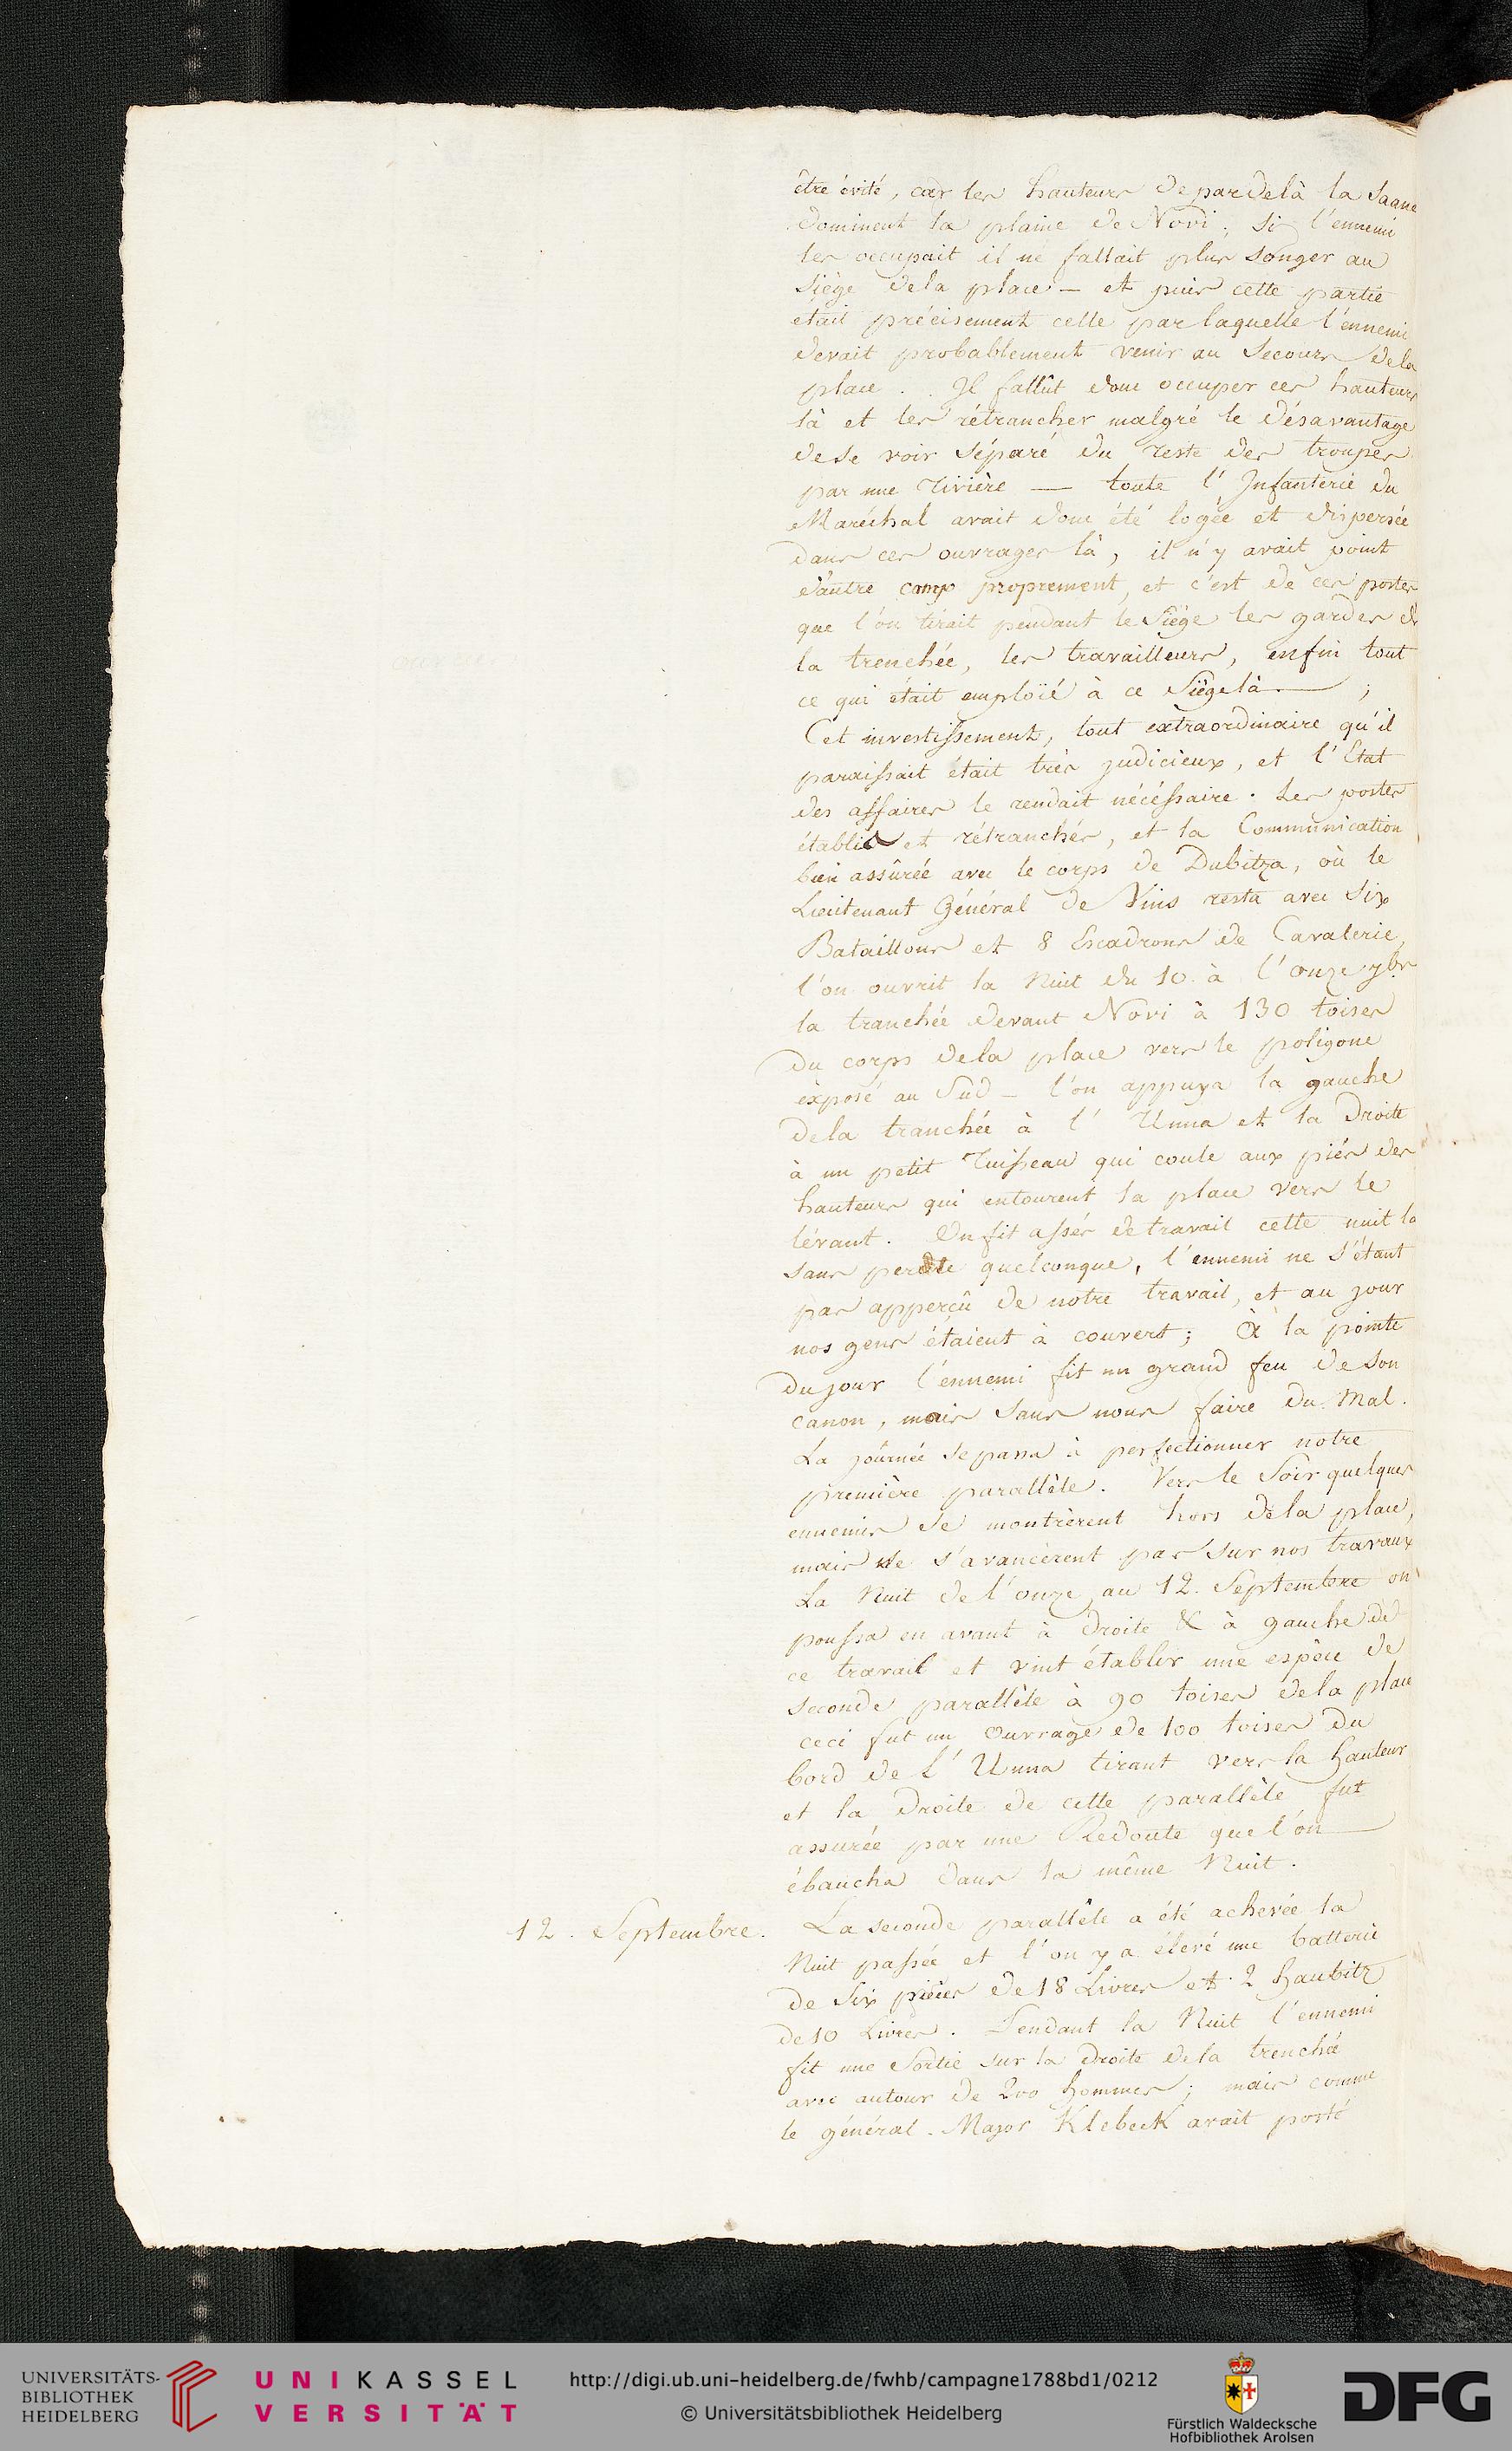 être évité, car les hauteurs de par delà la Saane
dominent la plaine de Novi; si l'ennemi
les occupait il ne fallait plus songer au
siège de la place — et puis cette partie
etait précisement celle par laquelle l'ennemi
devait probablement venir au secours de la
place. Il fallût donc occuper ces hauteurs
là et les rétrancher malgré le désavantage
de se voir séparé du reste des troupes
par une rivière — toute l'Infanterie du
Maréchal avait donc été logée et dispersée
dans ces ouvrages là, il n'y avait point
d'autre camp proprement, et c'est de ces postes
que l'on tirait pendant le Siège les gardes de
la trenchée, les travailleurs, enfin tout
ce qui était emploïé à ce Siège là — ;
Cet investissement, tout extraordinaire qu'il
paraissait était très judicieux, et l'Etat
des affaires le rendait nécéssaire. Les postes
établis et rétranchés, et la Communication
bien assûrée avec le corps de Dubitza, où le
Lieutenant Général de Vins resta avec Six
Bataillons et 8 Escadrons de Cavalerie,
l'on ouvrit la Nuit du 10. à l'onze 7br
la tranchée devant Novi à 130 toises
du corps de la place vers le poligone
exposé au Sud — l'on appuya la gauche
de la tranchée à l'Unna et la Droite
à un petit ruisseau qui coule aux piés des
hauteurs qui entourent la place vers le
lévant. On fit assés de travail cette nuit la
sans perdre quelconque, l'ennemi ne s'étant
pas apperçû de notre travail, et au jour
nos gens étaient à couvert; à la pointe
du jour l'ennemi fit un grand feu de son
canon, mais sans nous faire du Mal.
La journée se passa à perfectionner notre
première parallèle. Vers le Soir quelques
ennemis se montrèrent hors de la place,
mais ne s'avancèrent pas sur nos travaux
La Nuit de l'onze au 12. Septembre on
poussa en avant à droite & à gauche de
ce travail et vint établir une espèce de
seconde parallèle à 90 toises de la place
ceci fut un Ouvrage de 100 toises du
bord de l'Unna tirant vers la hauteur
et la Droite de cette parallèle fut
assurée par une Redoute que l'on
ébaucha dans la même Nuit.
12. Septembre. La seconde parallèle a été achevée la
Nuit passée et l'on y a élevé une batterie
de Six pièces de 18 Livres et 2 haubitz
de 10 Livres. Pendant la Nuit l'ennemi
fit une Sortie sur la Droite de la trenchée
avec autour de 200 hommes; mais comme
le général-Major Klebeck avait posté
UNIVERSITÄTS-
BIBLIOTHEK
HEIDELBERG
UNIKASSEL
VERSITÄT
http://digi.ub.uni-heidelberg.de/fwhb/campagne1788bd1/0212
© Universitätsbibliothek Heidelberg
Fürstlich Waldecksche
Hofbibliothek Arolsen
DFG